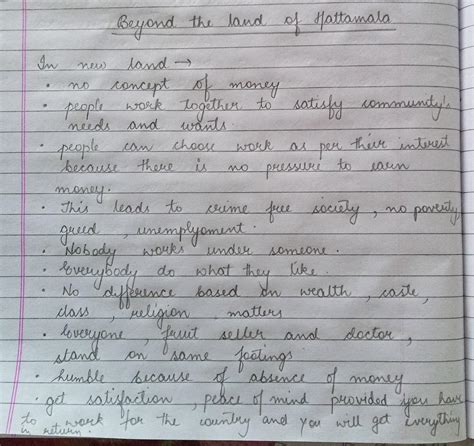 Beyond the land of Hattamala
In new land →
• no concept of money
• people work together to satisfy community's
needs and wants.
• people can choose work as per their interest
because there is no pressure to earn
money.
• This leads to crime free society, no poverty,
greed, unemplyoment.
• Nobody works under someone.
• Everybody do what they like.
• No difference based on wealth, caste,
class, religion, matters
• Everyone, fruit seller and doctor,
stand on same footings.
• humble because of absence of money
• get satisfaction, peace of mind provided you have
to work for the country and you will get everything
in return.